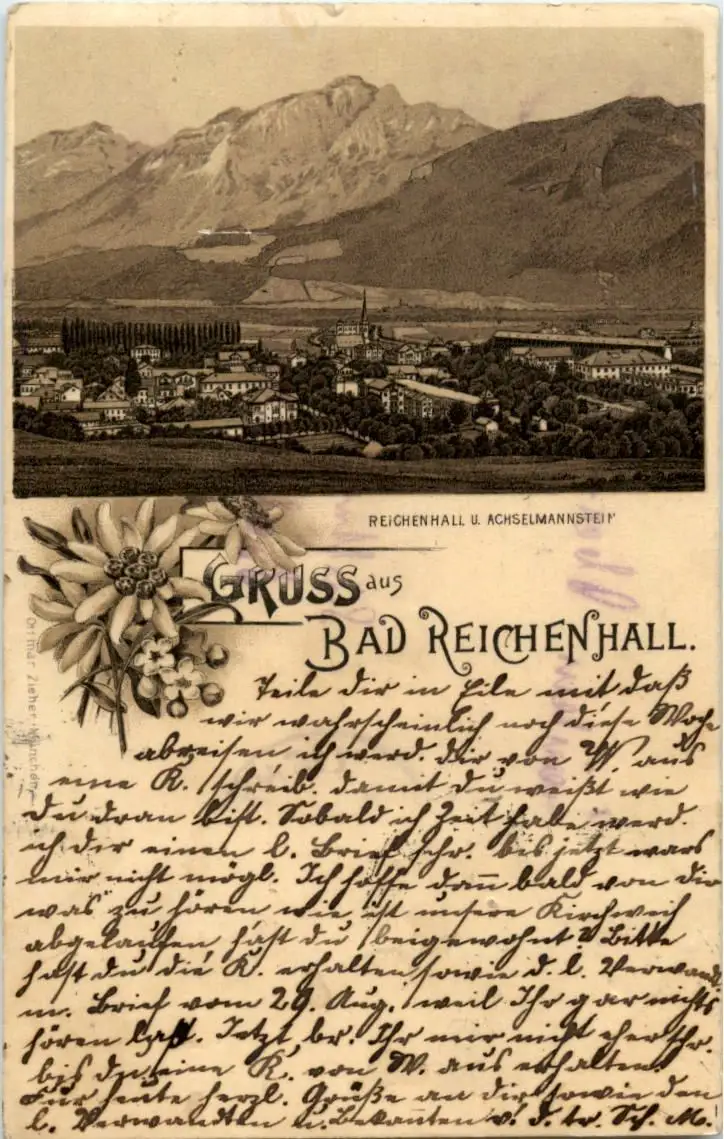 REICHENHALL U. ACHSELMANNSTEIN
GRUSS aus
BAD REICHENHALL.
Ottmar Zieher, München
Teile dir in Eile mit daß
wir wahrscheinlich noch diese Woche
abreisen ich werd. dir von W. aus
eine K. schreib. damit du weißt wie
du dran bist. Sobald ich Zeit habe werd.
ich dir einen l. Brief schr. bis jetzt wars
mir nicht mögl. Ich hoffe dann bald von dir
was zu hören wie ist unsere Kirchweih
abgelaufen hast du beigewohnt? Bitte
hast du die K. erhalten sowie d. l. Verwandt.
m. Brief vom 29. Aug. weil Ihr gar nichts
hören laßt. Jetzt br. Ihr mir nicht eher schr.
bis du eine K. von W. aus erhalten.
Für heute herzl. Grüße an dir sowie den
l. Verwandten u. Bekannten v. d. tr. Sch. M.